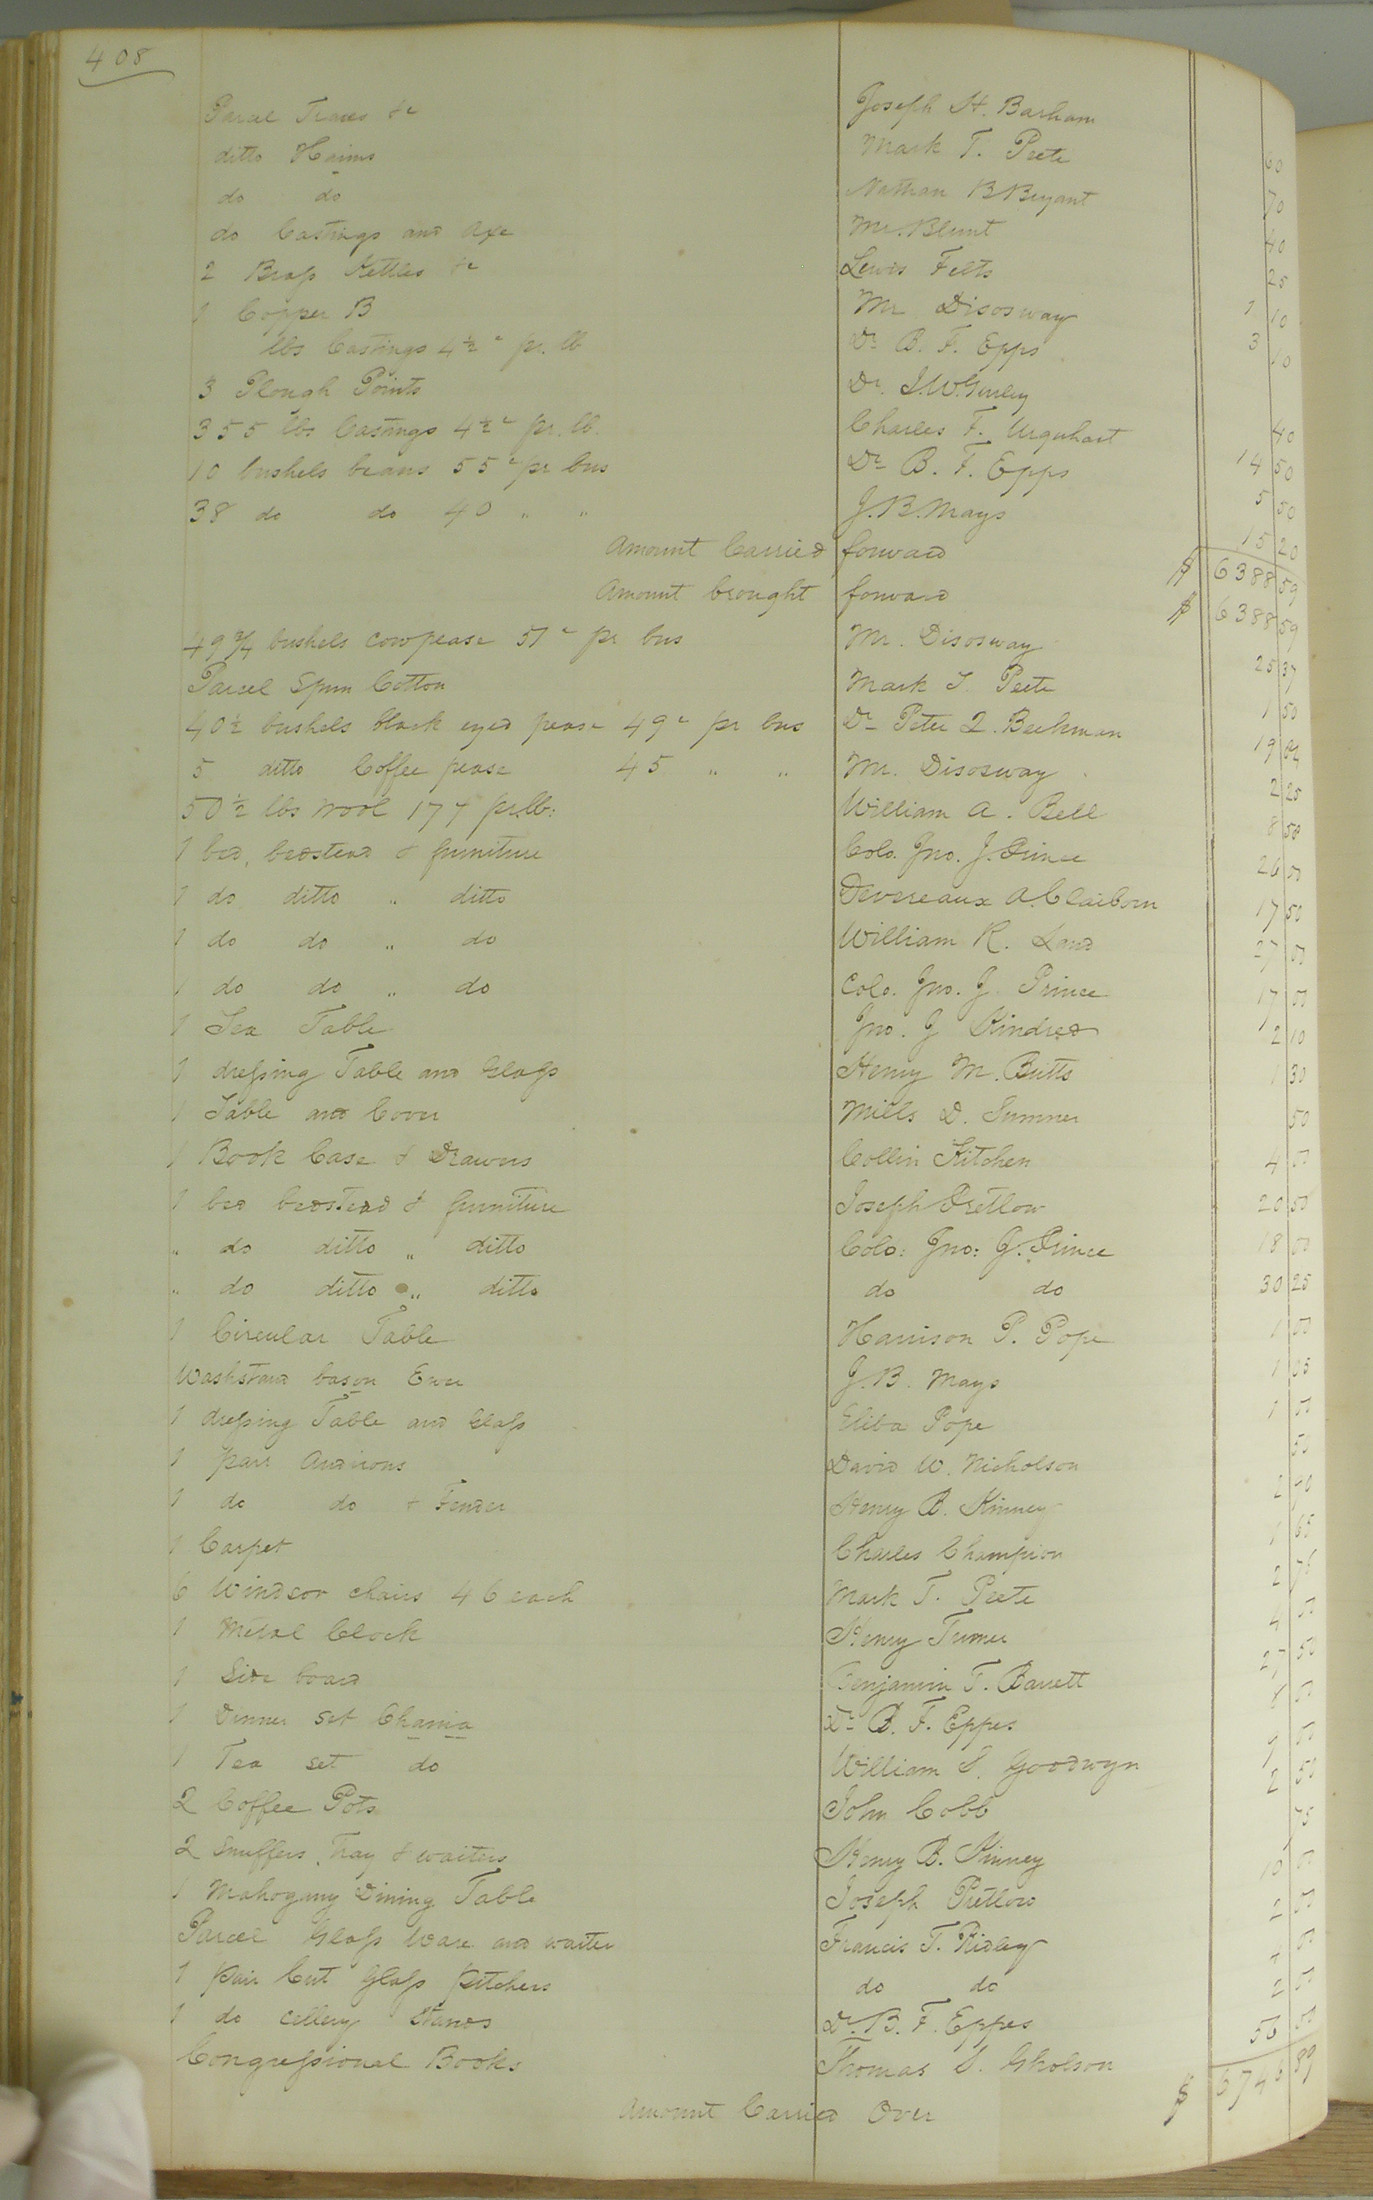 408
Parcel Traces &c Joseph H. Barham 60
ditto Haims Mark T. Peete 70
do do Nathan B Bryant 40
do Castings and Axe Mr. Blunt 25
2 Brass Kettles &c Lewis Felts 1 10
1 Copper B Mr Disosway 3 10
lbs Castings 4½ c pr. lb Dr B. F. Epps
3 Plough Points Dr. 40
355 lbs Castings 4½ c pr. lb. Charles F. Urquhart 14 50
10 bushels beans 55 c pr bus Dr B. F. Epps 5 50
38 do do 40 " " J. B. Mays 15 20
Amount Carried forward $ 6388 59
Amount brought forward $ 6388 59
49¾ bushels cowpease 51 c pr bus Mr. Disosway 25 37
Parcel Spun Cotton Mark T Peete 1 50
40½ bushels black eyed pease 49 c pr bus Dr Peter Beekman 19 84
5 ditto Coffee pease 45 " " Mr. Disosway 2 25
50½ lbs wool 17 pr lb: William A. Bell 8 58
1 bed, bedstead & furniture Colo. Jno. J. Prince 26 00
1 do ditto " ditto Devereaux A. Claiborn 17 50
1 do do " do William R. Land 27 00
1 do do " do Colo. Jno. J Prince 17 00
1 Tea Table Jno. J Kindred 2 10
1 dressing Table and Glass Henry M. Butts 1 30
1 Table and Cover Mills D. Sumner 50
1 Book Case & Drawers Collin Kitchen 4 00
1 bed bedstead & furniture Joseph Pretlow 20 50
" do ditto " ditto Colo: Jno: J. Prince 18 00
" do ditto " ditto do do 30 25
1 Circular Table Harrison P. Pope 1 00
Washstand bason Ewer J. B. Mays 1 05
1 dressing Table and Glass Pope 1 00
1 pair Andirons David W. Nicholson 50
1 do do & Fender Henry B. Kinney 2 50
1 Carpet Charles Champion 1 65
6 Windsor chairs 46 each Mark T. Peete 2 76
1 Metal Clock Henry Turner 4 00
1 Side board Benjamin T. Barrett 27 50
1 Dinner set Chania Dr B. F. Eppes 8 00
1 Tea set do William S. Goodwyn 00
2 Coffee Pots John Cobb 2 50
2 Snuffers, Tray & waiters Henry B. Kinney 75
1 Mahogany Dining Table Joseph Pretlow 10 00
Parcel Glass Ware and waiter Francis T. Ridley 2 00
1 pair Cut Glass pitchers do do 00
1 do cellery Stands Dr. B. F. Eppes 2 00
Congressional Books Thomas S. Gholson 50 00
Amount Carried Over $ 6746 89